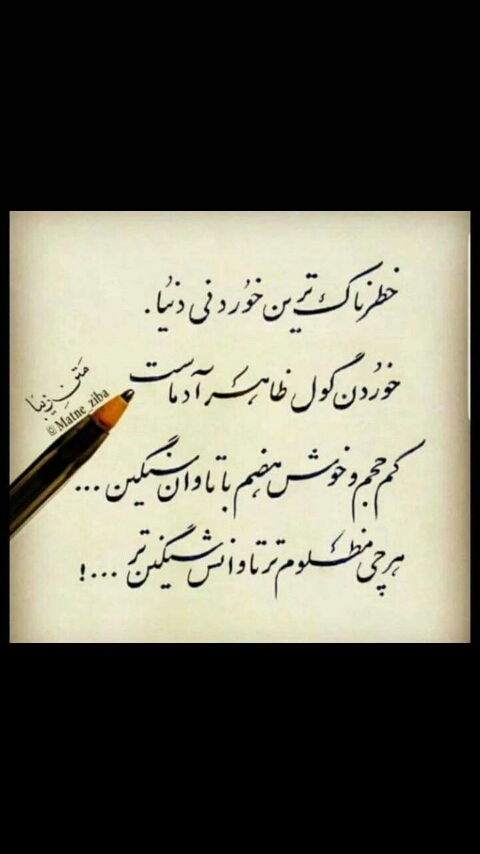 خطرناک ترین خوُردنی دنیا.
خوُردن گول ظاهر آدماست
کم حجم و خوش هضم با تاوان سنگین ...
هرچی مظلوم تر تاوانش سنگین تر ...!
مَتنِ زیبا
©Matne_ziba